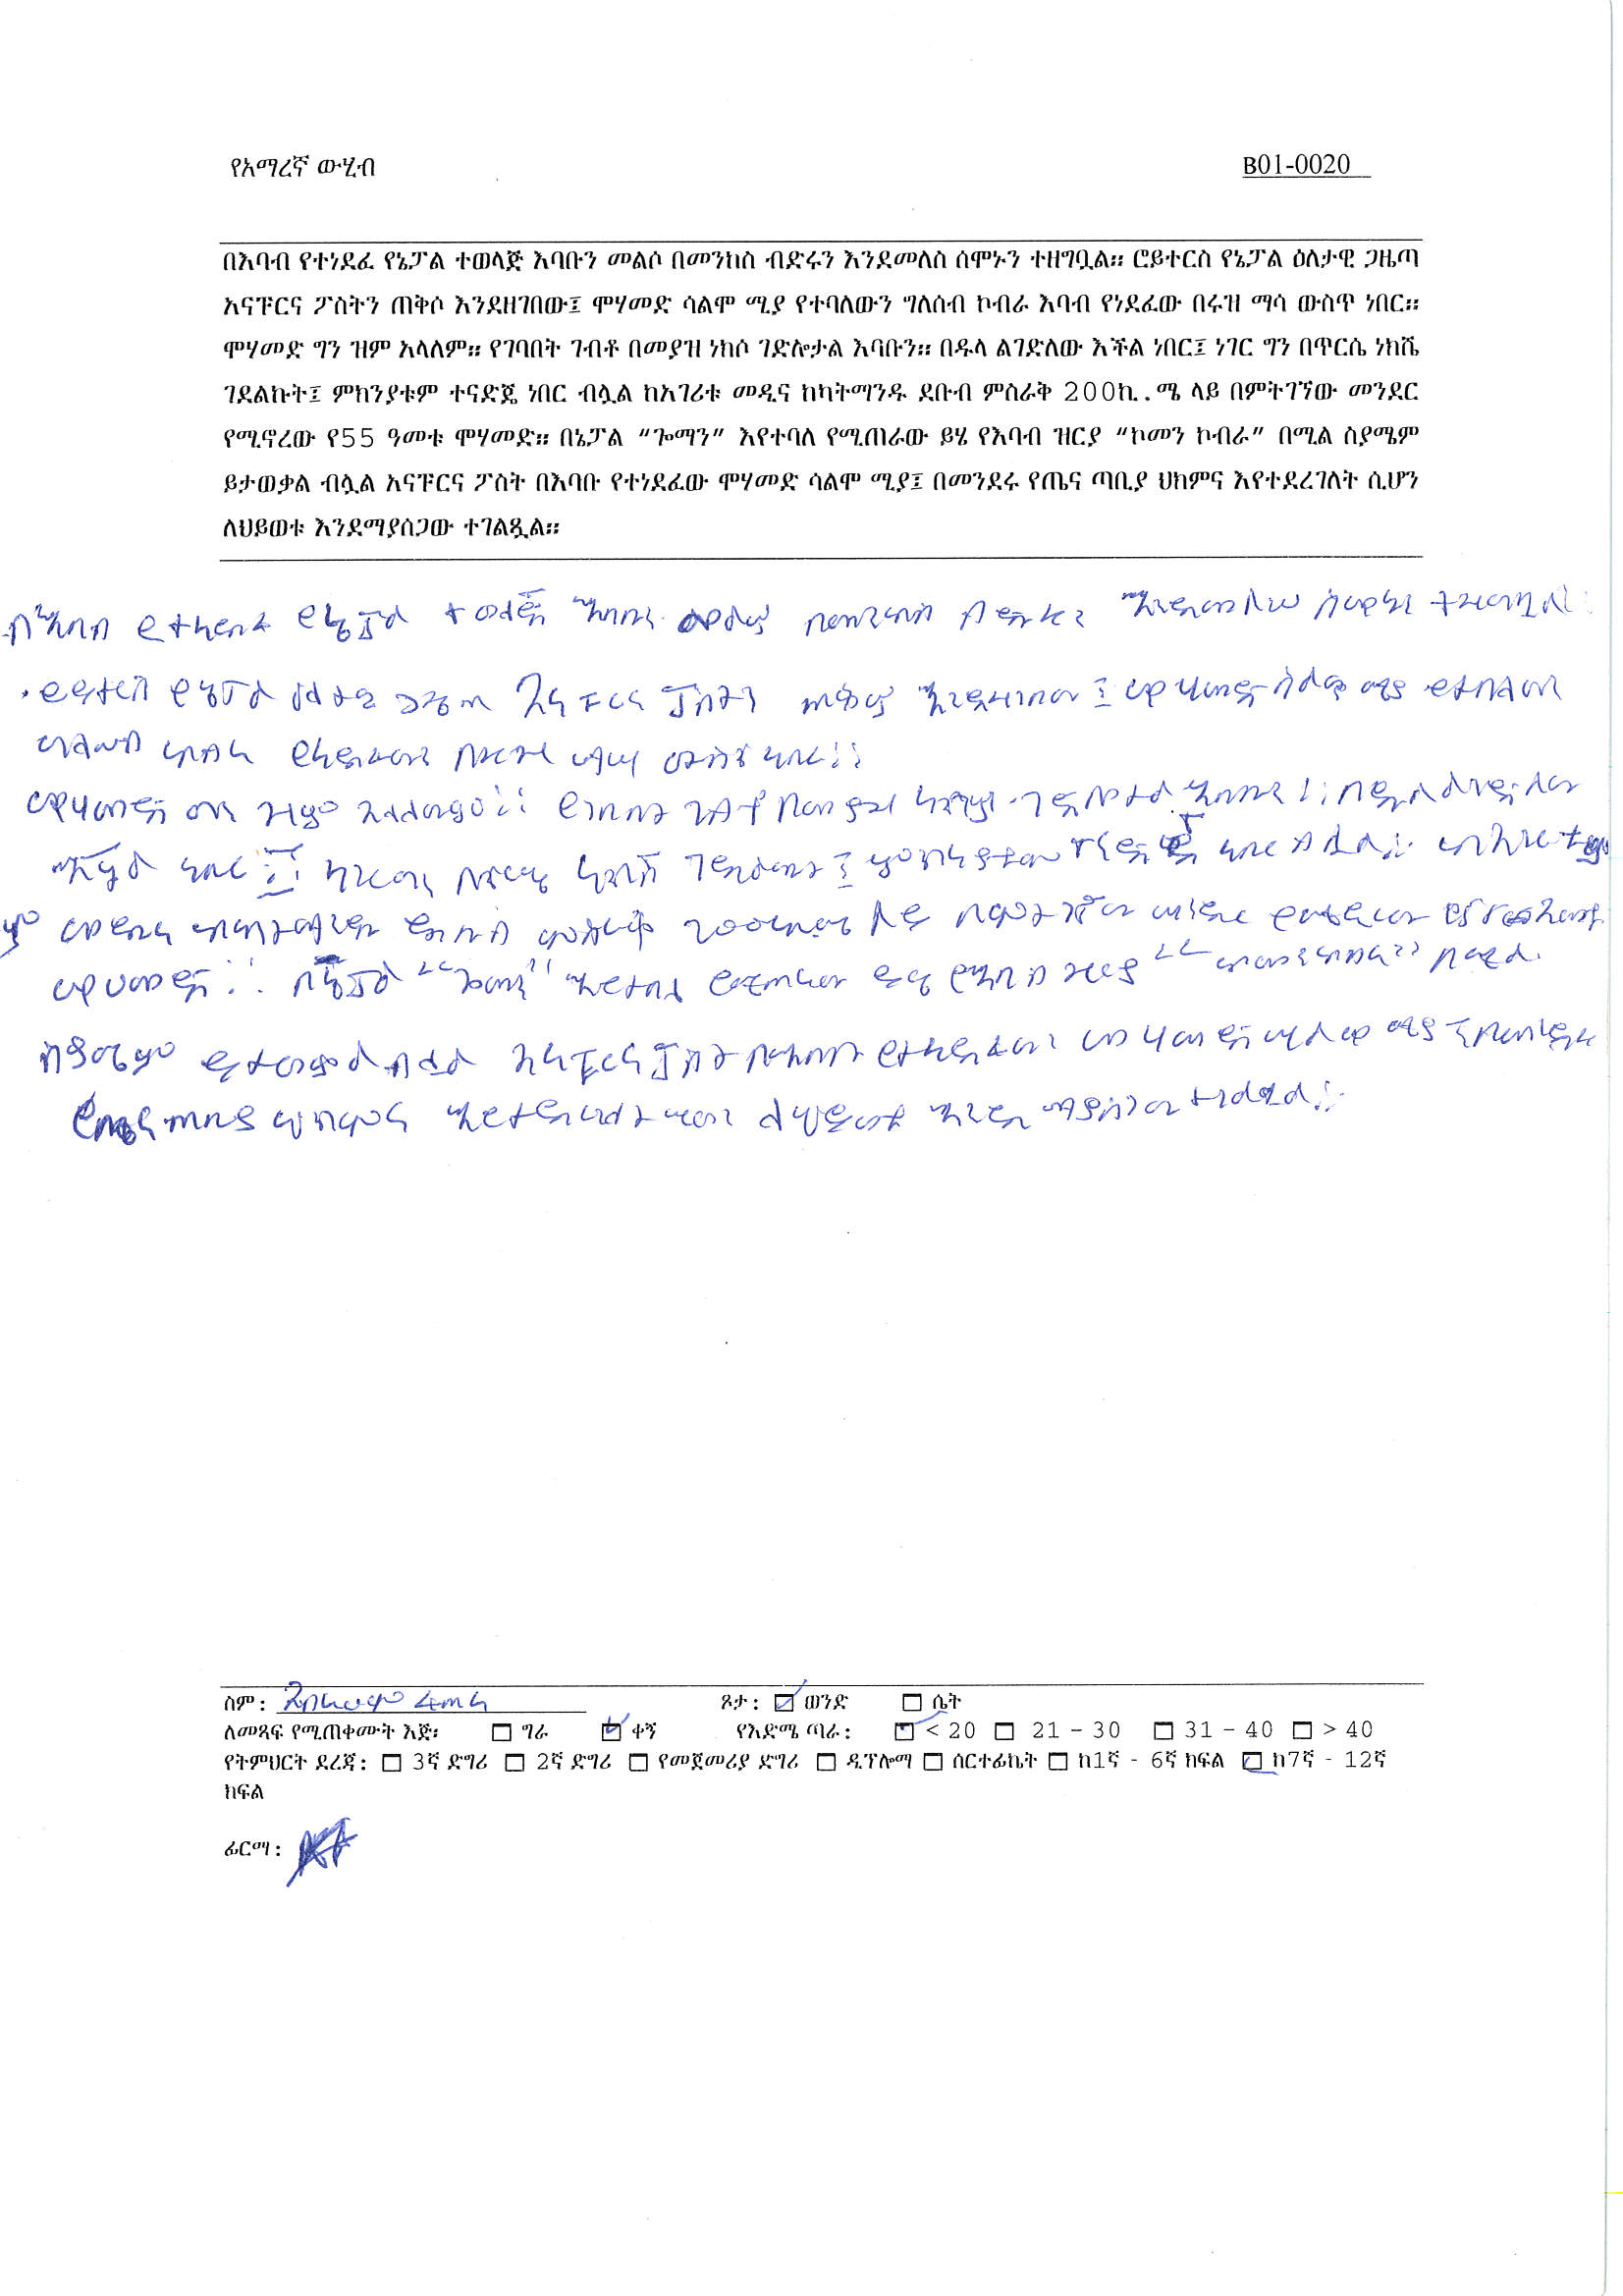 የአማረኛ ውሂብ B01-0020
በእባብ የተነደፈ የኔፓል ተወላጅ እባቡን መልሶ በመንከስ ብድሩን እንደመለስ ሰሞኑን ተዘግቧል። ሮይተርስ የኔፓል ዕለታዊ ጋዜጣ
አናፑርና ፖስትን ጠቅሶ እንደዘገበው፤ ሞሃመድ ሳልሞ ሚያ የተባለውን ግለሰብ ኮብራ እባብ የነደፈው በሩዝ ማሳ ውስጥ ነበር።
ሞሃመድ ግን ዝም አላለም። የገባበት ገብቶ በመያዝ ነክሶ ገድሎታል እባቡን። በዱላ ልገድለው እችል ነበር፤ ነገር ግን በጥርሴ ነክሼ
ገደልኩት፤ ምክንያቱም ተናድጄ ነበር ብሏል ከአገሪቱ መዲና ከካትማንዱ ደቡብ ምስራቅ 200ኪ.ሜ ላይ በምትገኘው መንደር
የሚኖረው የ55 ዓመቱ ሞሃመድ። በኔፓል “ጐማን” እየተባለ የሚጠራው ይሄ የእባብ ዝርያ “ኮመን ኮብራ” በሚል ስያሜም
ይታወቃል ብሏል አናፑርና ፖስት በእባቡ የተነደፈው ሞሃመድ ሳልሞ ሚያ፤ በመንደሩ የጤና ጣቢያ ህክምና እየተደረገለት ሲሆን
ለህይወቱ እንደማያሰጋው ተገልጿል።
በእባብ የተነደፈ የኔፓል ተወላጅ እባቡን መልሶ በመንከስ ብድሩን እንደመለስ ሰሞኑን ተዘግቧል።
የኔፓል ዕለታዊ ጋዜጣ አናፑርና ፖስትን ጠቅሶ እንደዘገበው፤ ሞሃመድ ሳልሞ ሚያ የተባለውን
ግለሰብ ኮብራ የነደፈው በሩዝ ማሳ ውስጥ ነበር።
ሞሃመድ ግን ዝም አላለም። የገባበት ገብቶ በመያዝ ነክሶ ገድሎታል እባቡን። በዱላ ልገድለው
እችል ነበር፤ ነገር ግን በጥርሴ ነክሼ ገደልኩት፤ ምክንያቱም ተናድጄ ነበር ብሏል
መዲና ከካትማንዱ ደቡብ ምስራቅ ላይ በምትገኘው መንደር የሚኖረው
ሞሃመድ። በኔፓል “ጐማን” እየተባለ የሚጠራው ይሄ የእባብ ዝርያ “ኮመን ኮብራ” በሚል
ስያሜም ይታወቃል ብሏል አናፑርና ፖስት በእባቡ የተነደፈው ሞሃመድ ሳልሞ ሚያ፤ በመንደሩ
የጤና ጣቢያ ህክምና እየተደረገለት ሲሆን ለህይወቱ እንደማያሰጋው ተገልጿል።
ስም: ፆታ: ወንድ ሴት
ለመጻፍ የሚጠቀሙት እጅ፡ ግራ ቀኝ የእድሜ ጣራ: < 20 21 - 30 31 - 40 > 40
የትምህርት ደረጃ: 3ኛ ድግሪ 2ኛ ድግሪ የመጀመሪያ ድግሪ ዲፕሎማ ሰርተፊኬት ከ1ኛ - 6ኛ ክፍል ከ7ኛ - 12ኛ
ክፍል
ፊርማ: